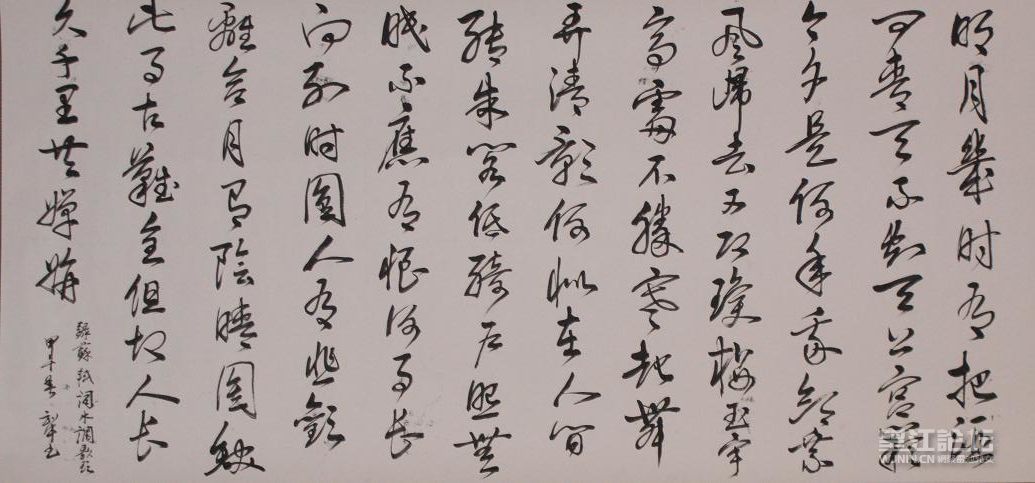 明月幾时有把酒
问青天不知天上宫阙
今夕是何年我欲乘
风归去又恐瓊楼玉宇
高處不勝寒起舞
弄清影何似在人间
转朱阁低绮户照無
眠不應有恨何事长
向别时圆人有悲歡
離合月有陰晴圆缺
此事古難全但願人长
久千里共嬋娟
録蘇軾词水调歌头
甲午春
望江論坛